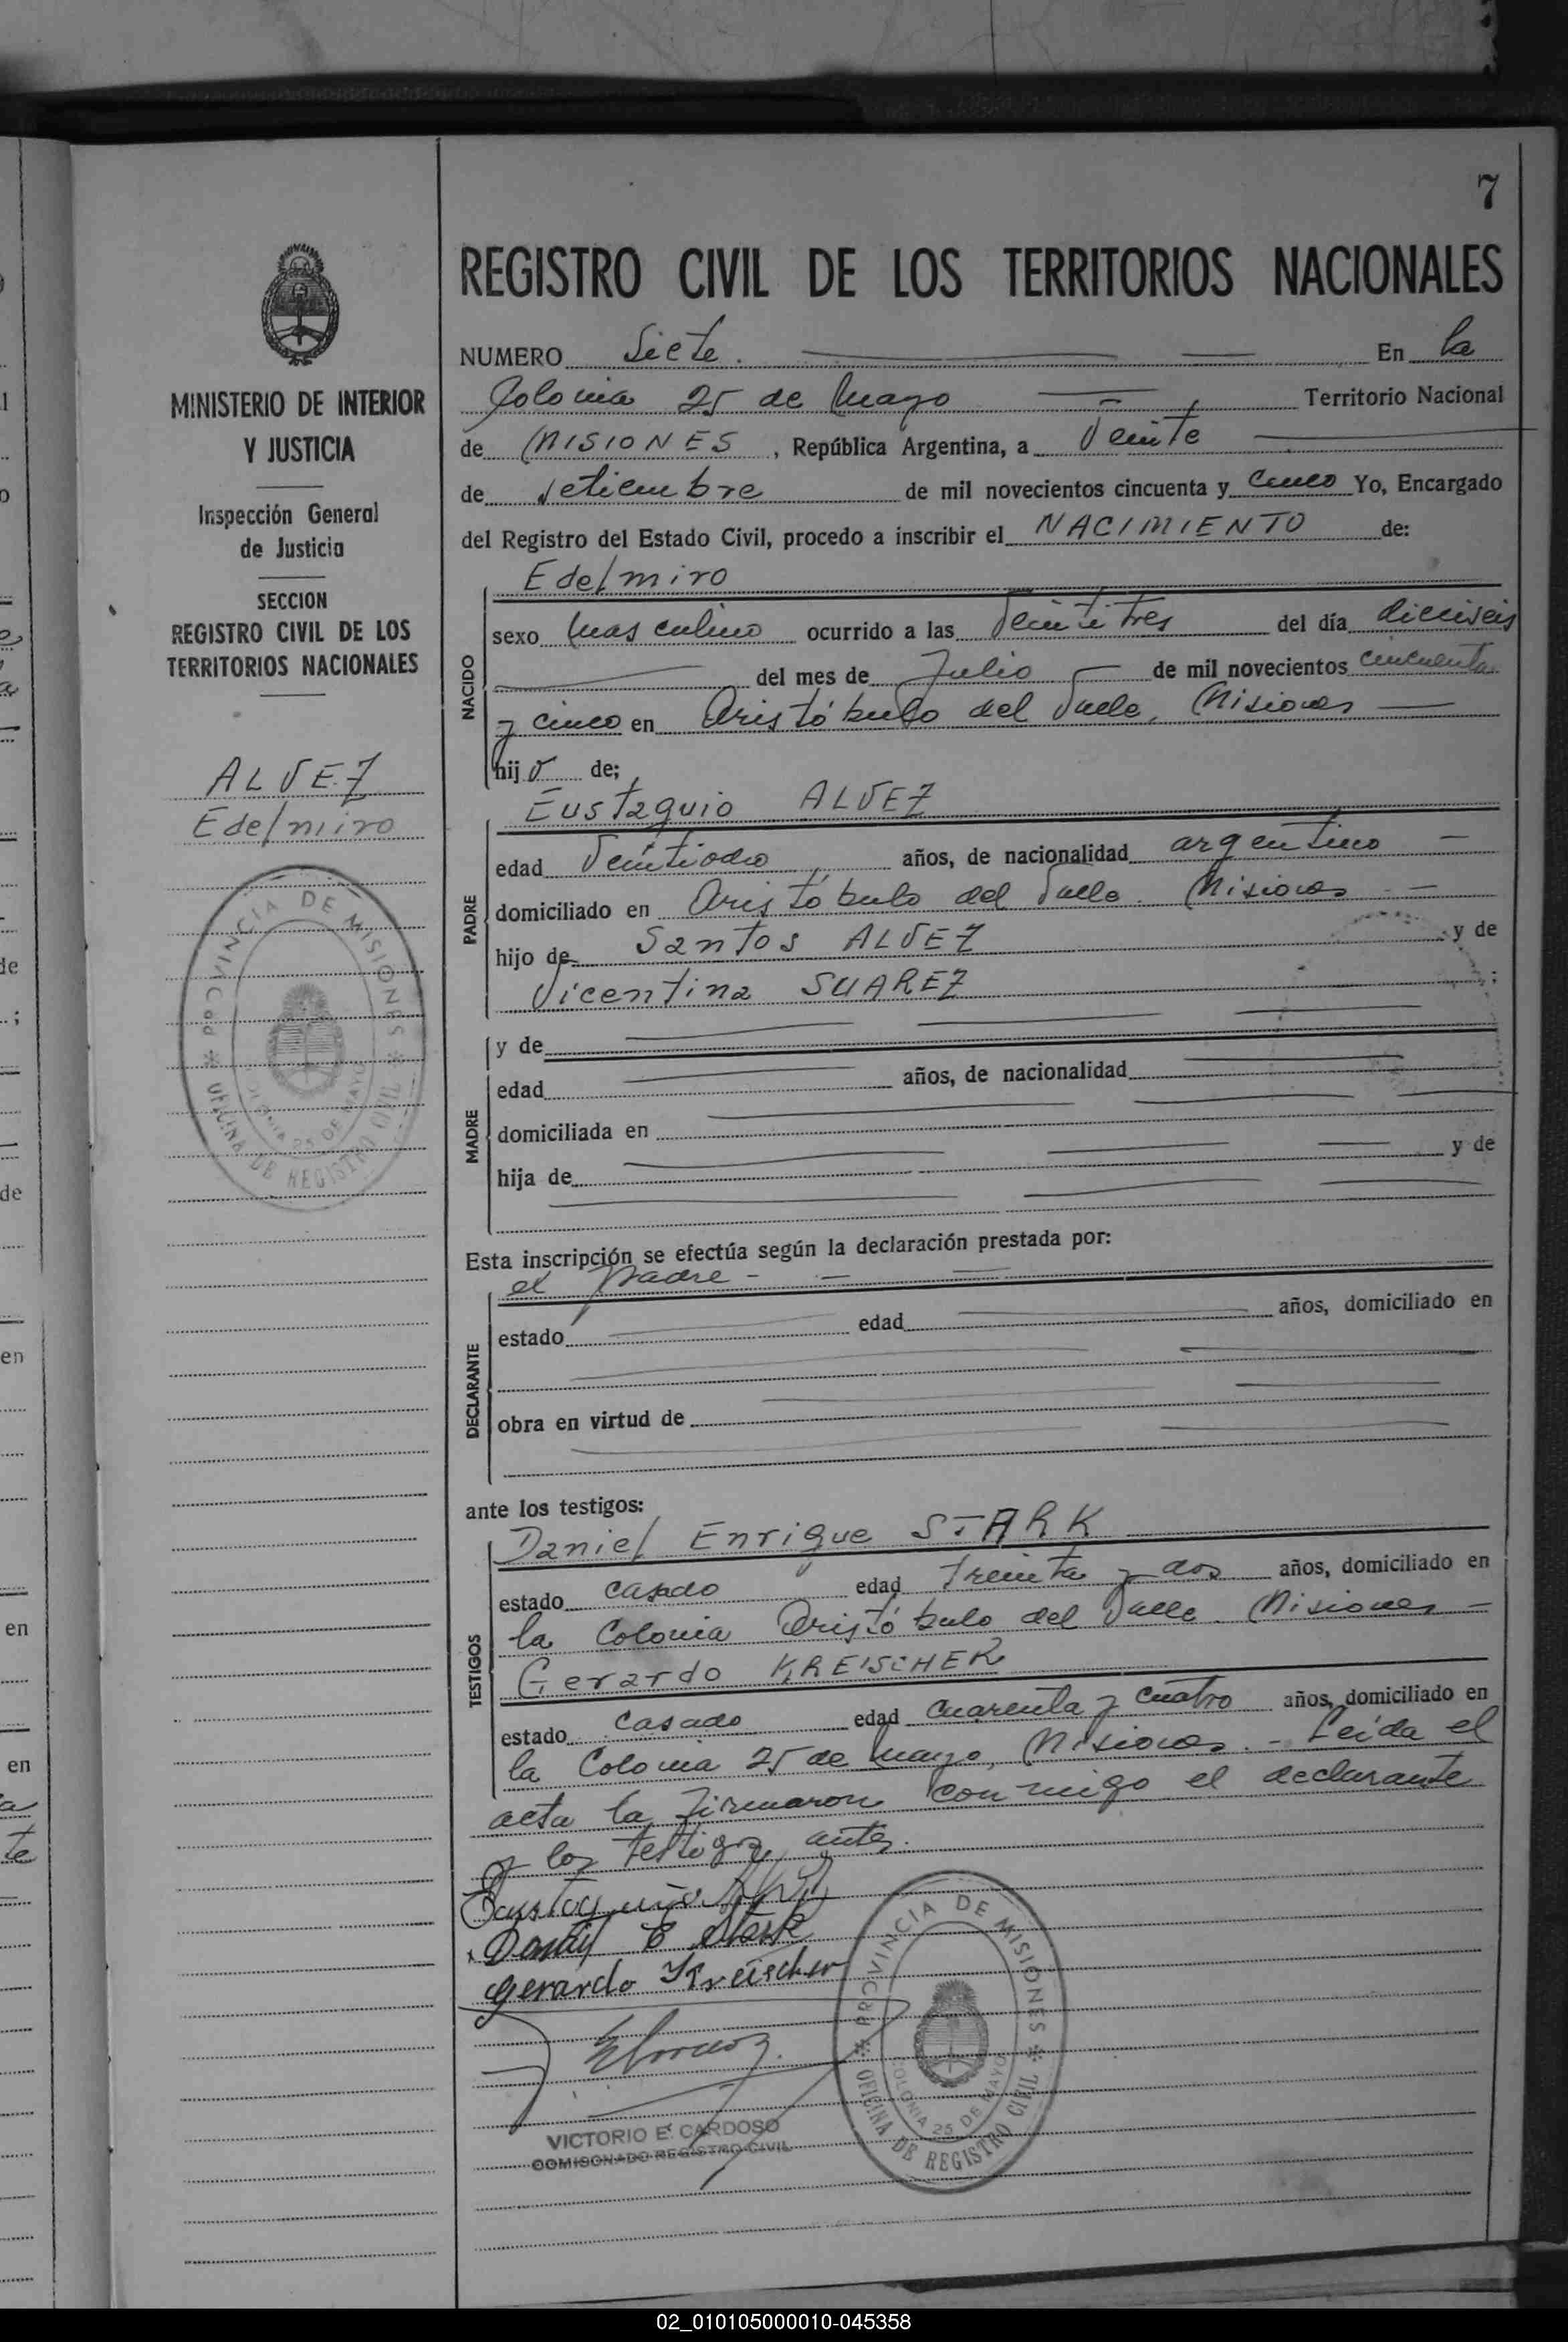 7
REGISTRO CIVIL DE LOS TERRITORIOS NACIONALES
MINISTERIO DE INTERIOR
Y JUSTICIA
Inspección General
de Justicia
SECCION
REGISTRO CIVIL DE LOS
TERRITORIOS NACIONALES
ALVEZ
Edelmiro
PROVINCIA DE MISIONES
OFICINA DE REGISTRO CIVIL
COLONIA 25 DE MAYO
NUMERO Siete. En la
Colonia 25 de Mayo Territorio Nacional
de MISIONES, República Argentina, a Veinte
de setiembre de mil novecientos cincuenta y cinco Yo, Encargado
del Registro del Estado Civil, procedo a inscribir el NACIMIENTO de:
NACIDO
Edelmiro
sexo Masculino ocurrido a las Veintitres del día dieciseis
del mes de Julio de mil novecientos cincuenta
y cinco en Aristóbulo del Valle, Misiones
hijo de;
PADRE
Eustaquio ALVEZ
edad Veintiocho años, de nacionalidad argentino
domiciliado en Aristóbulo del Valle. Misiones
hijo de Santos ALVEZ y de
Vicentina SUAREZ ;
MADRE
y de
edad años, de nacionalidad
domiciliada en
hija de y de
Esta inscripción se efectúa según la declaración prestada por:
DECLARANTE
el padre
estado edad años, domiciliado en
obra en virtud de
ante los testigos:
TESTIGOS
Daniel Enrique STARK
estado casado edad Treinta y dos años, domiciliado en
la Colonia Aristóbulo del Valle. Misiones
Gerardo KREISCHER
estado casado edad cuarenta y cuatro años, domiciliado en
la Colonia 25 de Mayo, Misiones. - Leída el
acta la firmaron conmigo el declarante
y los testigos antes.
Daniel E Stark
Gerardo Kreischer
VICTORIO E. CARDOSO
COMISONADO REGISTRO CIVIL
PROVINCIA DE MISIONES
OFICINA DE REGISTRO CIVIL
COLONIA 25 DE MAYO
02_010105000010-045358